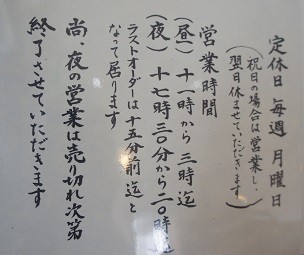 定休日 毎週 月曜日
(祝日の場合は営業し、
翌日休ませていただきます)
営業時間
(昼) 十一時から 三時迄
(夜) 十七時三0分から二0時迄
ラストオーダーは十五分前迄と
なって居ります
尚 夜の営業は売り切れ次第
終了させていただきます